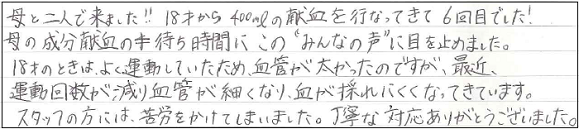 母と二人で来ました!! 18才から400mlの献血を行なってきて6回目でした!
母の成分献血の待ち時間にこの"みんなの声"に目を止めました。
18才のときは、よく運動していたため、血管が太かったのですが、最近、
運動回数が減り血管が細くなり、血が採れにくくなってきています。
スタッフの方には、苦労をかけてしまいました。丁寧な対応ありがとうございました。